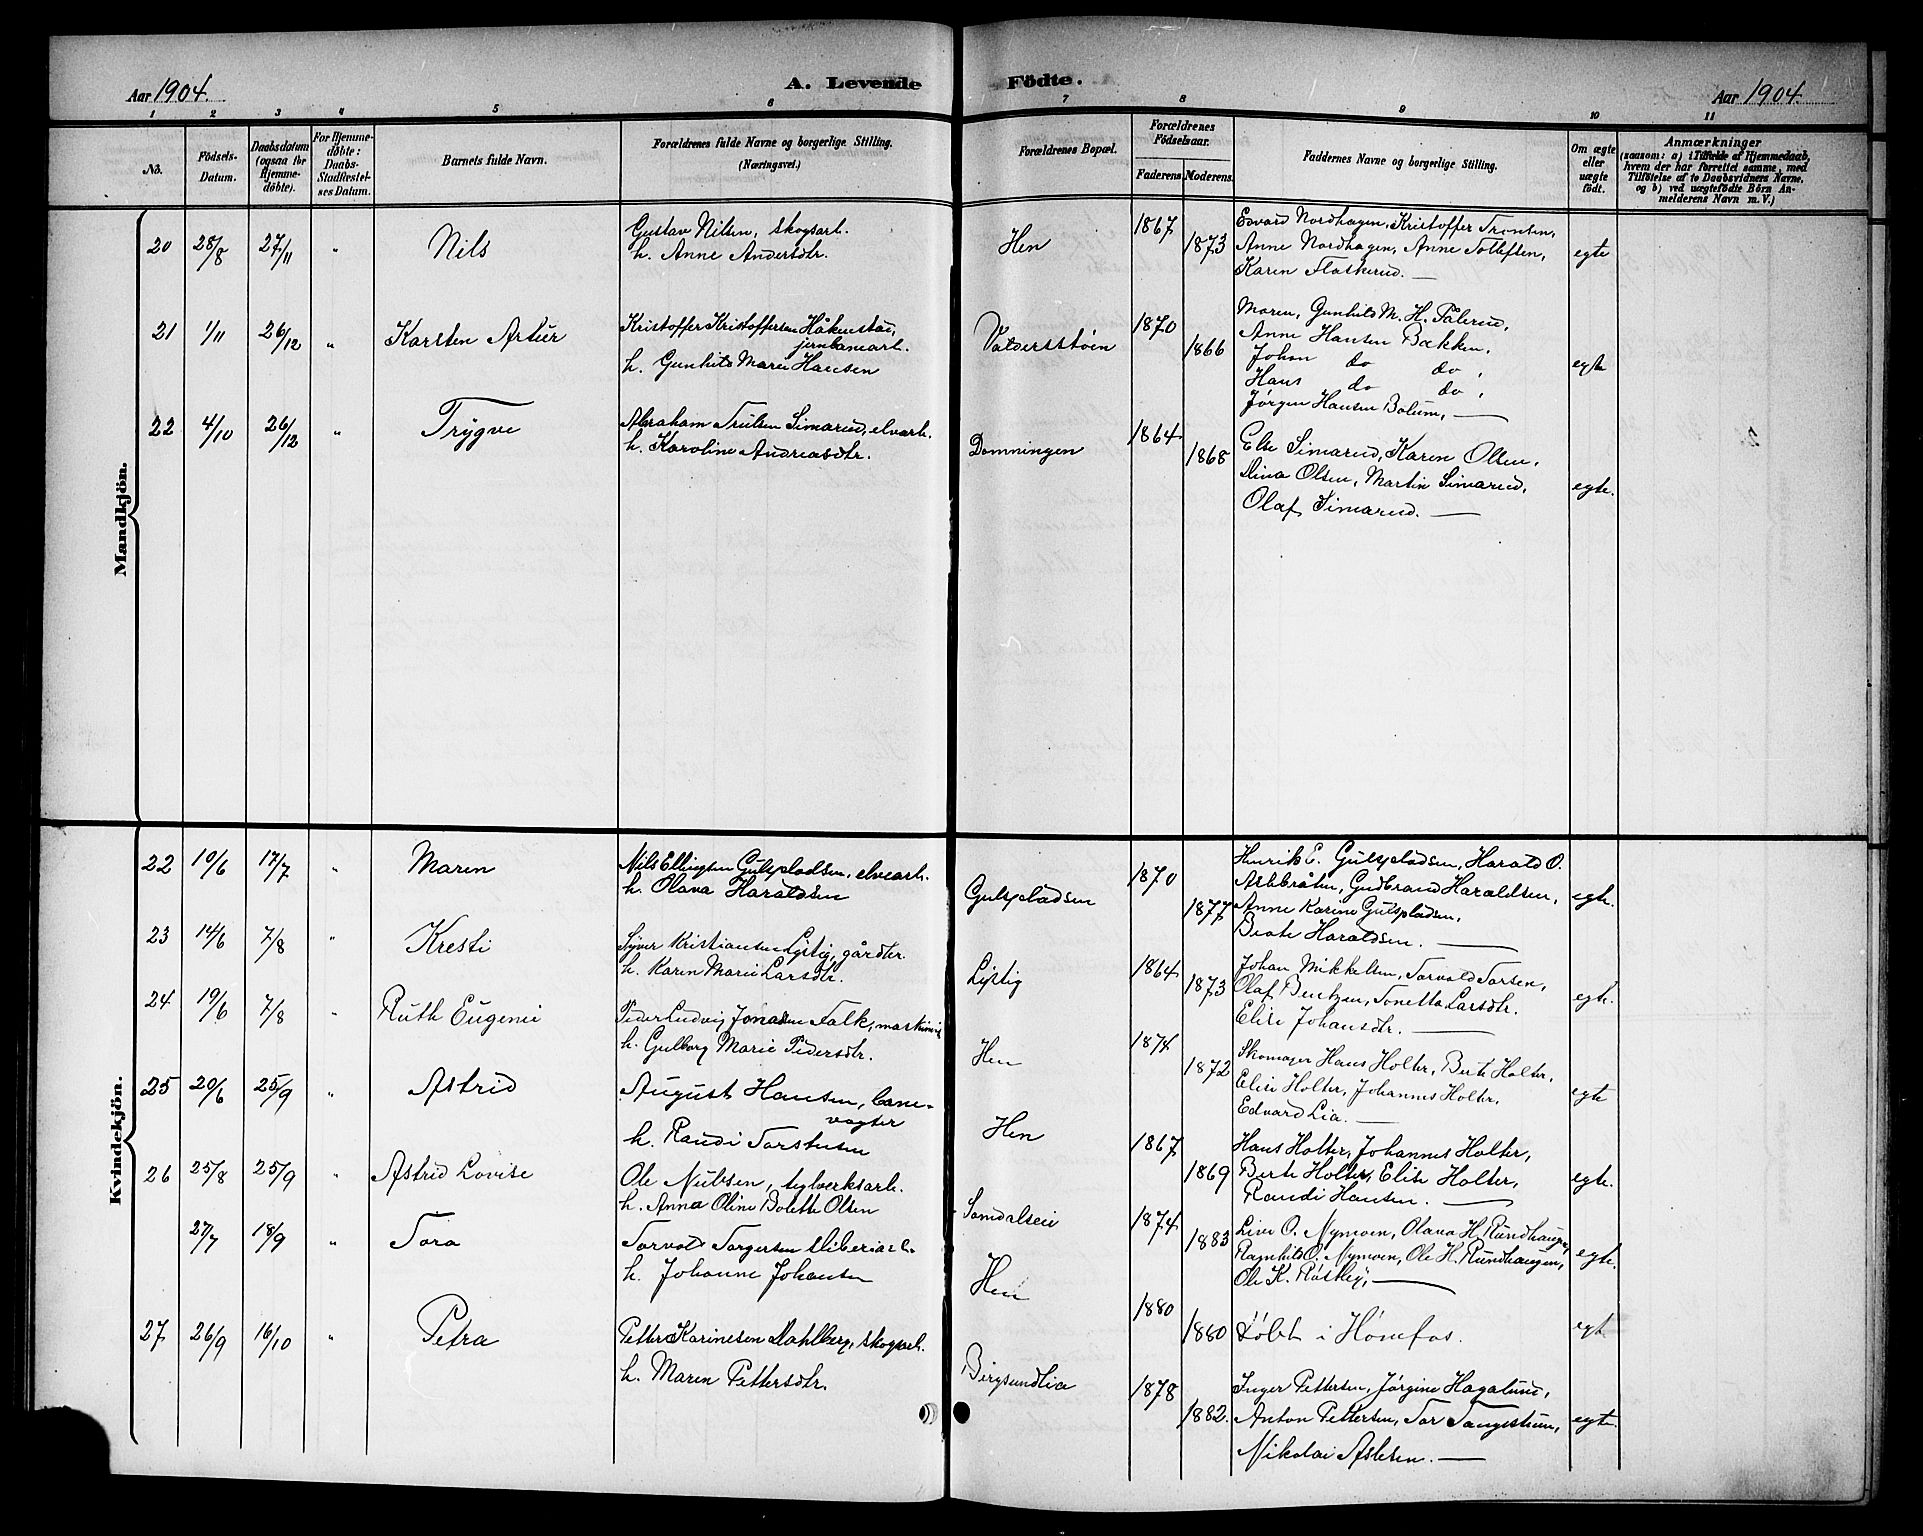 Aar 1904.
A. Levende
Födte.
Aar 1904.
1 2 3 4 5 6 7 8 9 10 11
No.
Födsels-
Datum.
Daabsdatum
(ogsaa for
Hjemme-
döbte).
For Hjemme-
döbte:
Daabs-
Stadfæstel-
ses Datum.
Barnets fulde Navn.
Forældrenes fulde Navne og borgerlige Stilling.
(Næringsvei.)
Forældrenes Bopæl.
Forældrenes
Födselsaar.
Faderens Moderens.
Faddernes Navne og borgerlige Stilling.
Om ægte
eller
uægte
födt.
Anmærkninger
(saasom: a) i Tilfælde af Hjemmedaab,
hvem der har forrettet samme, med
Tilföielse af to Daabsvidners Navne,
og b) ved uægtefödte Börn An-
melderens Navn m. V.)
Mandkjön.
20 28/8 27/11 " Nils
Gustav Nilsen, skogsarb.
h. Anne Andersdtr.
Hen
1867
1873
Edvard Nordhagen, Kristoffer Tronsen,
Anne Nordhagen, Anne Tollefsen,
Karen Flaskerud. —
egte
21 1/11 26/12 " Karsten Artur
Kristoffer Kristoffersen Håkenstad,
jernbanearb.
h. Gunhild Marie Hansen
Valdersstøen
1870
1866
Maren, Gunhild M. H. Pålerud,
Anne Hansen Bakken,
Johan do do,
Hans do do,
Jørgen Hansen Bolum, —
egte
22 4/10 26/12 " Trygve
Abraham Trulsen Simarud, elvarb.
h. Karoline Andreasdtr.
Domningen
1864
1868
Else Simarud, Karen Olsen,
Dina Olsen, Martin Simarud,
Olaf Simarud. —
egte.
Kvindekjön.
22 10/6 17/7 " Maren
Nils Ellingsen Gulspladsen, elvearb.
h. Olava Haraldsen
Gulspladsen
1870
1877
Henrik E. Gulspladsen, Harald O.
Askbråten, Gudbrand Haraldsen,
Anne Karine Gulspladsen,
Beate Haraldsen. —
egte.
23 14/6 7/8 " Kresti
Syver Kristiansen Lystig, gårdbr.
h. Karen Marie Larsdtr.
Lystig
1864
1873
Johan Mikkelsen, Torvald Torsen,
Olaf Bentzen, Tonetta Larsdtr.
Elise Johansdtr. —
egte.
24 19/6 7/8 " Ruth Eugenie
Peder Ludvig Jonassen Falk, maskinist
h. Gulborg Marie Pedersdtr.
Hen
1874
1872
Skomager Hans Holter, Berte Holter,
Elise Holter, Johannes Holter,
Edvard Lia. —
egte
25 20/6 25/9 " Astrid
August Hansen, bane-
vogter
h. Randi Torstensen
Hen
1867
1869
Hans Holter, Johannes Holter,
Berte Holter, Elise Holter,
Randi Hansen. —
egte.
26 25/8 25/9 " Astrid Lovise
Ole Nilsen, teglverksarb.
h. Anna Oline Bolette Olsen
Somdalseie
1874
1883
Live O. Nymoen, Olava H. Rundhaugen,
Ragnhild O. Nymoen, Ole H. Rundhaugen,
Ole K. Røstley, —
egte.
27/7 18/9 " Tora
Torvald Torgersen sliberiarb.
h. Johanne Johansen
Hen
1880
1880
Døbt i Hønefos.
egte
27 26/9 16/10 " Petra
Petter Karinesen Dahlberg, skogsarb.
h. Maren Pettersdtr.
Bergsundlia
1878
1882.
Inger Pettersen, Jørgine Hagalund,
Anton Pettersen, Tor Tangestuen,
Nikolai Aslesen. —
egte.